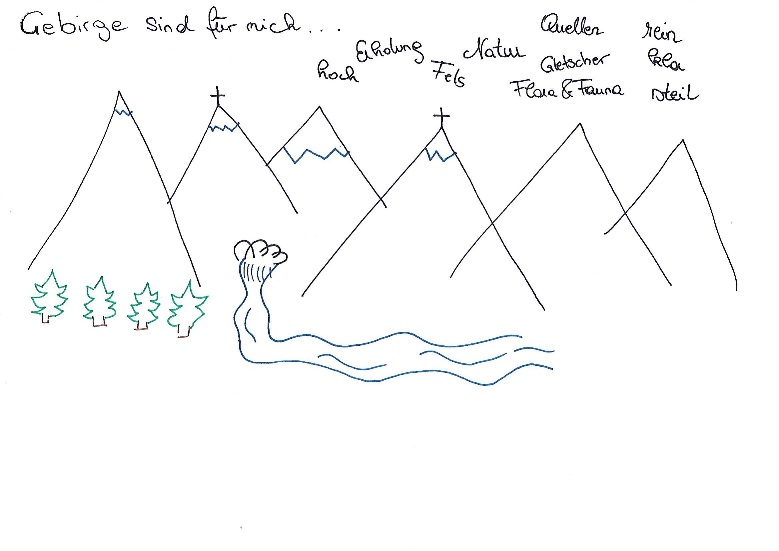 Gebirge sind für mich...
hoch
Erholung
Fels
Natur
Quellen
Gletscher
Flora & Fauna
rein
klar
steil